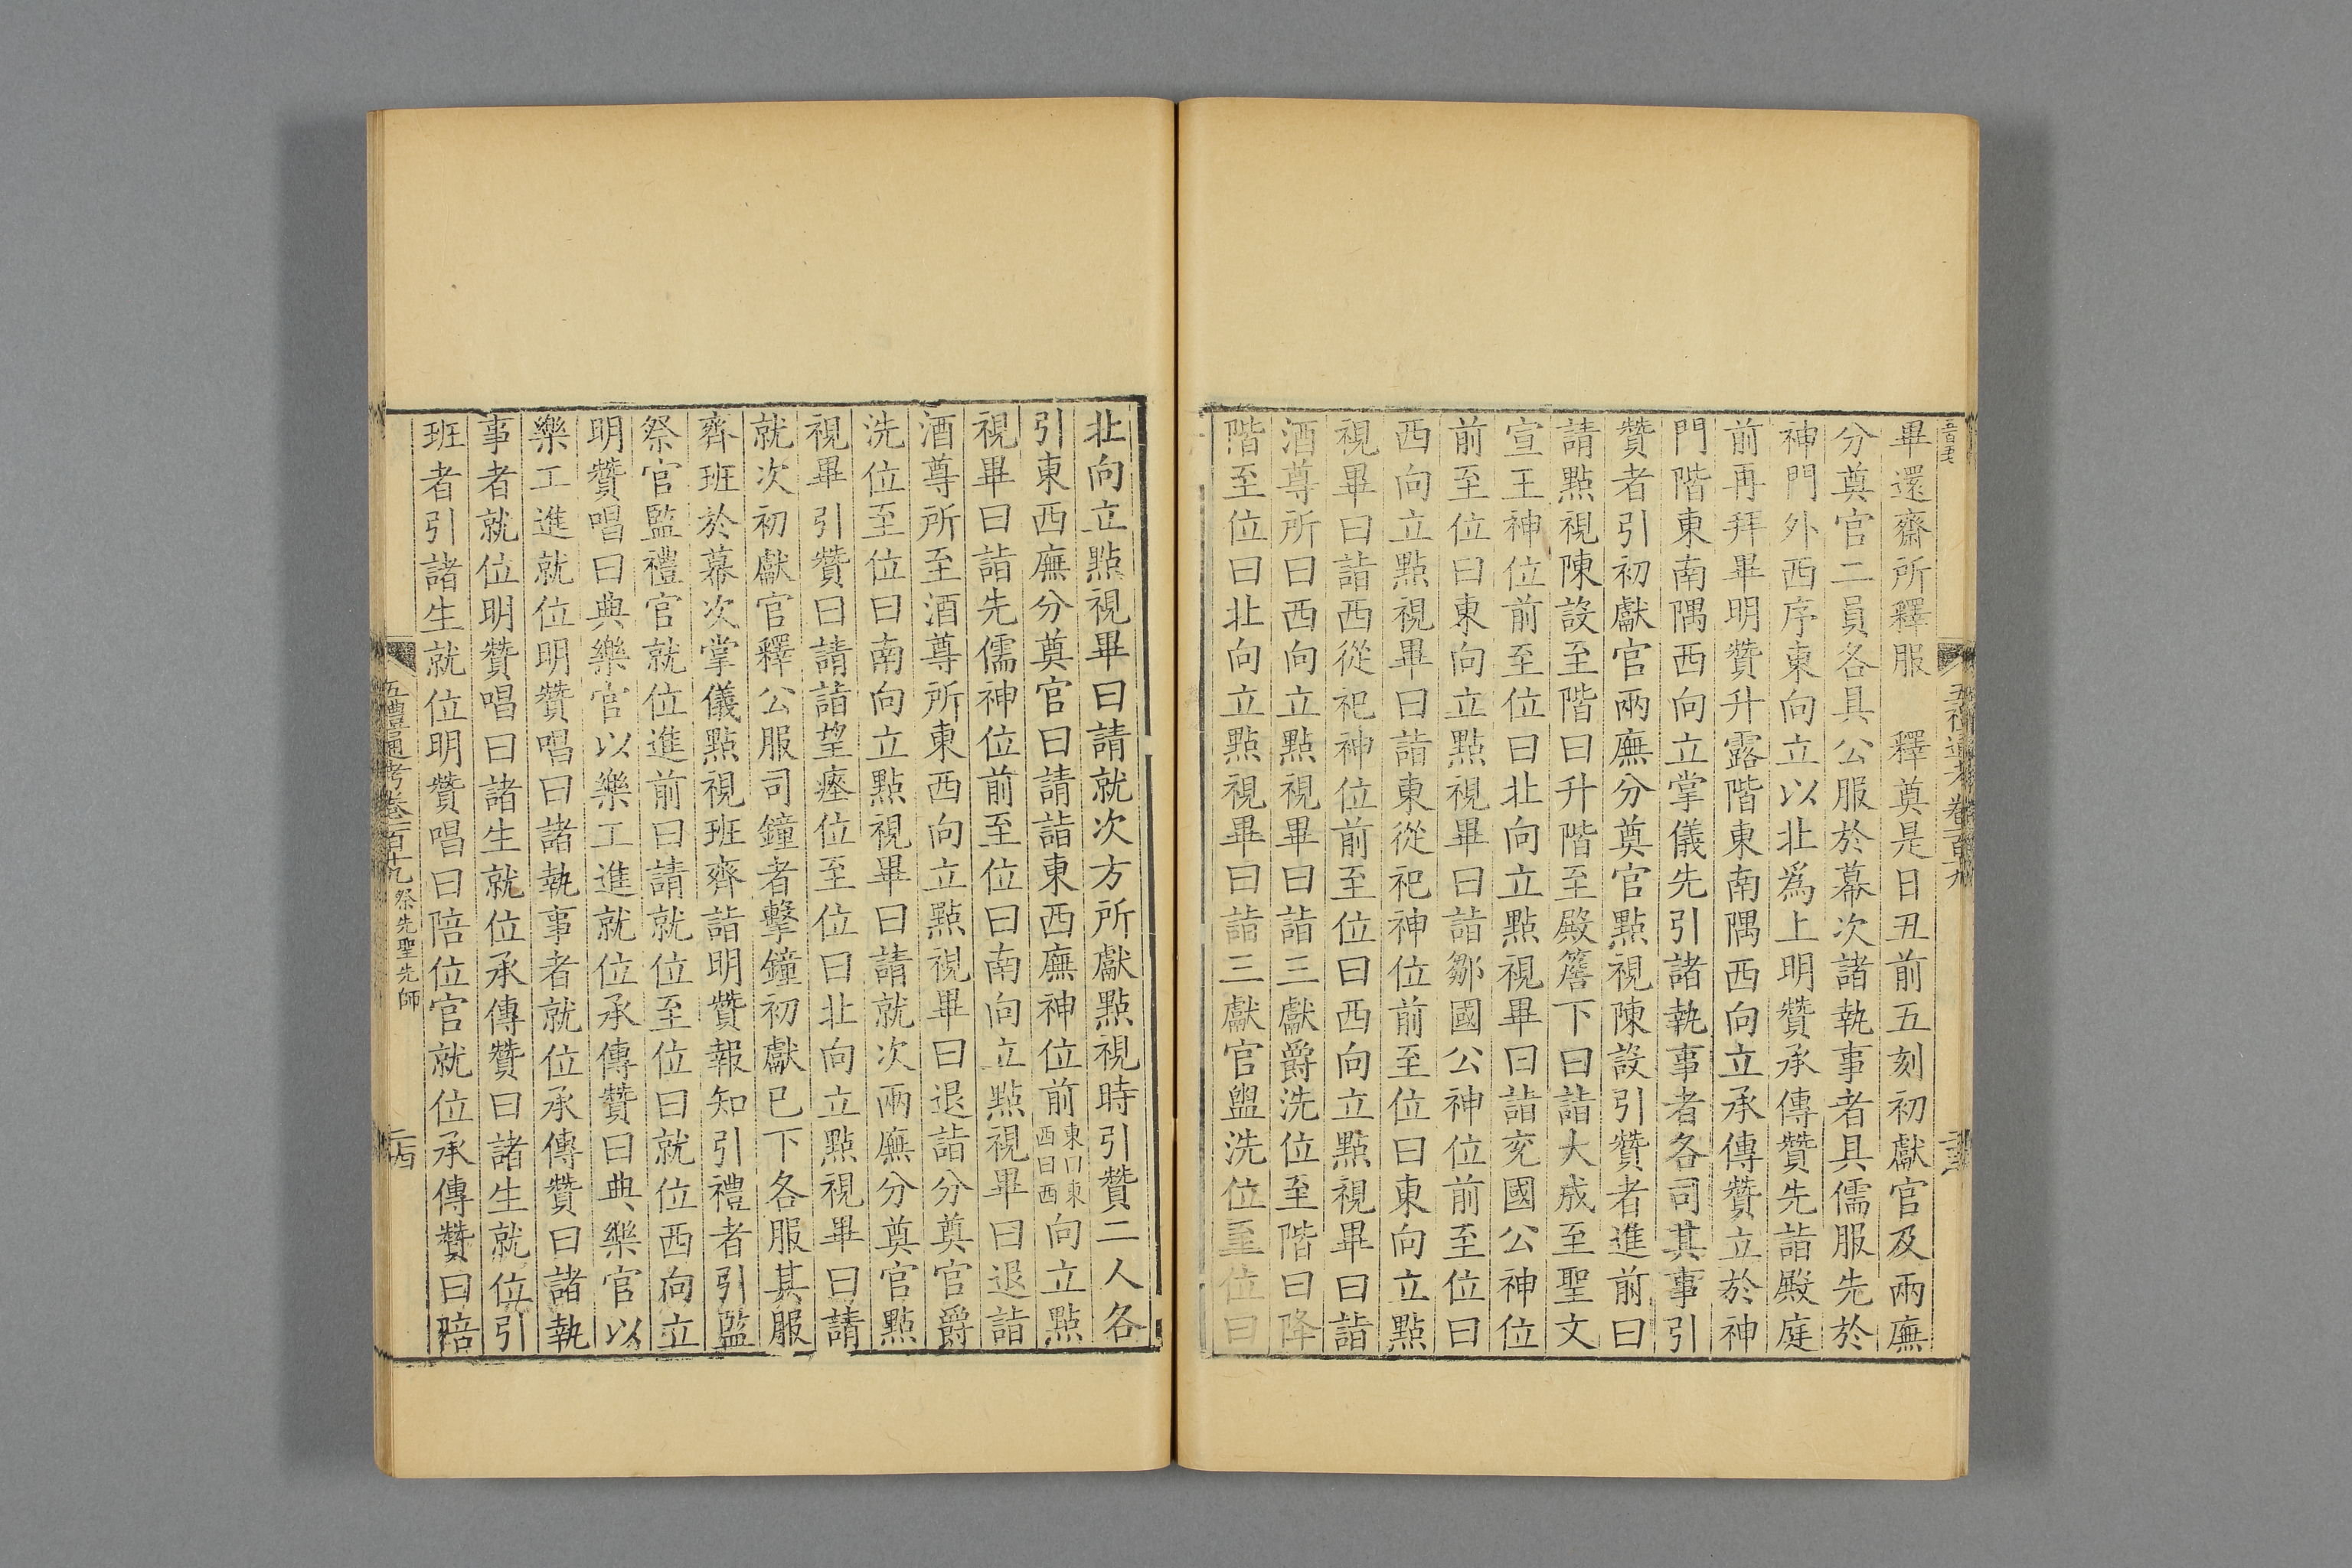 畢還齋所釋服　釋奠是日丑前五刻初獻官及兩廡
分奠官二員各具公服於幕次諸執事者具儒服先於
神門外西序東向立以北爲上明贊承傳贊先詣殿庭
前再拜畢明贊升露階東南隅西向立承傳贊立於神
門階東南隅西向立掌儀先引諸執事者各司其事引
贊者引初獻官兩廡分奠官點視陳設引贊者進前曰
請點視陳設至階曰升階至殿簷下曰詣大成至聖文
宣王神位前至位曰北向立點視畢曰詣兗國公神位
前至位曰東向立點視畢曰詣鄒國公神位前至位曰
西向立點視畢曰詣東從祀神位前至位曰東向立點
視畢曰詣西從祀神位前至位曰西向立點視畢曰詣
酒尊所曰西向立點視畢曰詣三獻爵洗位至階曰降
階至位曰北向立點視畢曰詣三獻官盥洗位至位曰
北向立點視畢曰請就次方所獻點視時引贊二人各
引東西廡分奠官曰請詣東西廡神位前東曰東西曰西向立點
視畢曰詣先儒神位前至位曰南向立點視畢曰退詣
酒尊所至酒尊所東西向立點視畢曰退詣分奠官爵
洗位至位曰南向立點視畢曰請就次兩廡分奠官點
視畢引贊曰請詣望瘞位至位曰北向立點視畢曰請
就次初獻官釋公服司鐘者擊鐘初獻已下各服其服
齊班於幕次掌儀點視班齊詣明贊報知引禮者引監
祭官監禮官就位進前曰請就位至位曰就位西向立
明贊唱曰典樂官以樂工進就位承傳贊曰典樂官以
樂工進就位明贊唱曰諸執事者就位承傳贊曰諸執
事者就位明贊唱曰諸生就位承傳贊曰諸生就位引
班者引諸生就位明贊唱曰陪位官就位承傳贊曰陪
五禮通考卷一百十九 祭先聖先師